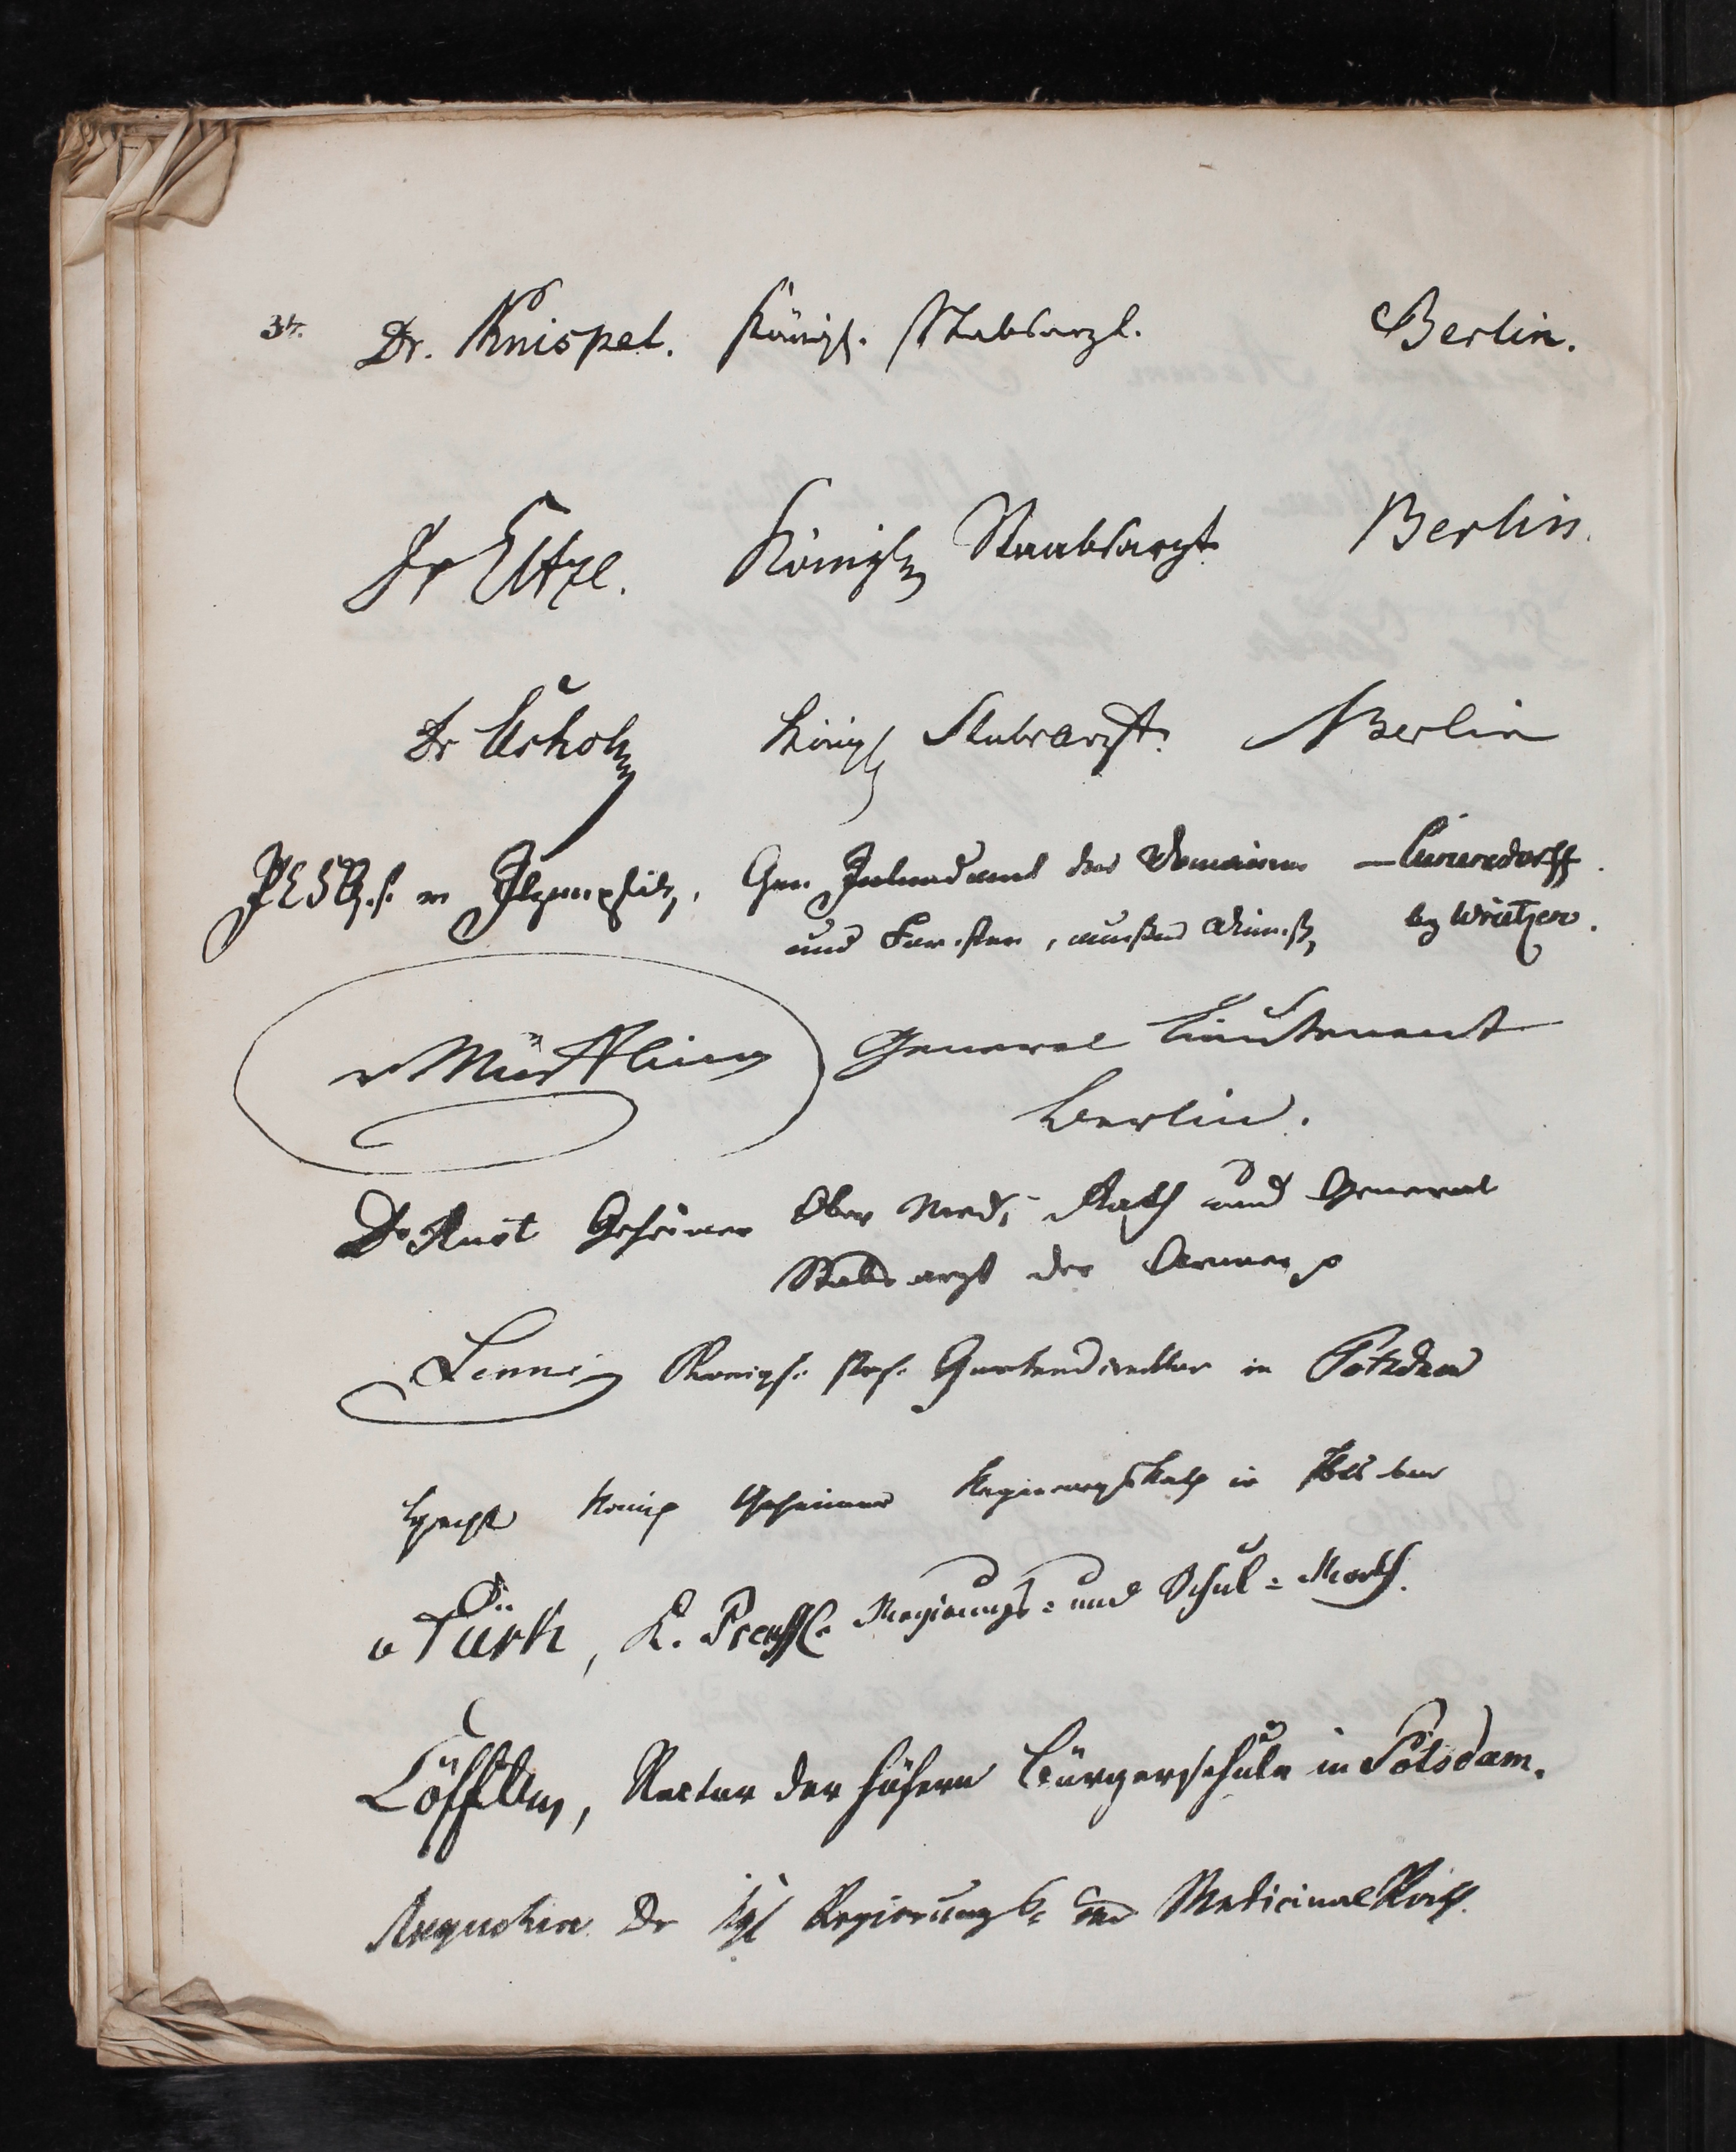 34. Dr. Knispel. Königl. Stabsarzt. Berlin.
Dr Eltze. Königl. Staabsarzt Berlin.
Dr Königl Stabsarzt. Berlin
v Itzenplitz, Gen Intendant der Domainen – Cunersdorff.
und Forsten, by Writzen.
v Müffling General Lieutenant
Berlin.
Dr Rust Geheimer Ober Med: Rath und General
Stabsarzt der Armee
Lenné Koenigl. Gartendirector in Potsdam
König Geheimer Regierungs Rath in
v Türk, K. Preuß. Regierungs- und Schul-Rath.
Löffler, Rector der höhern Bürgerschule in Potsdam.
Augustin Dr Kgl Regierungs- und Medicinal Rath.